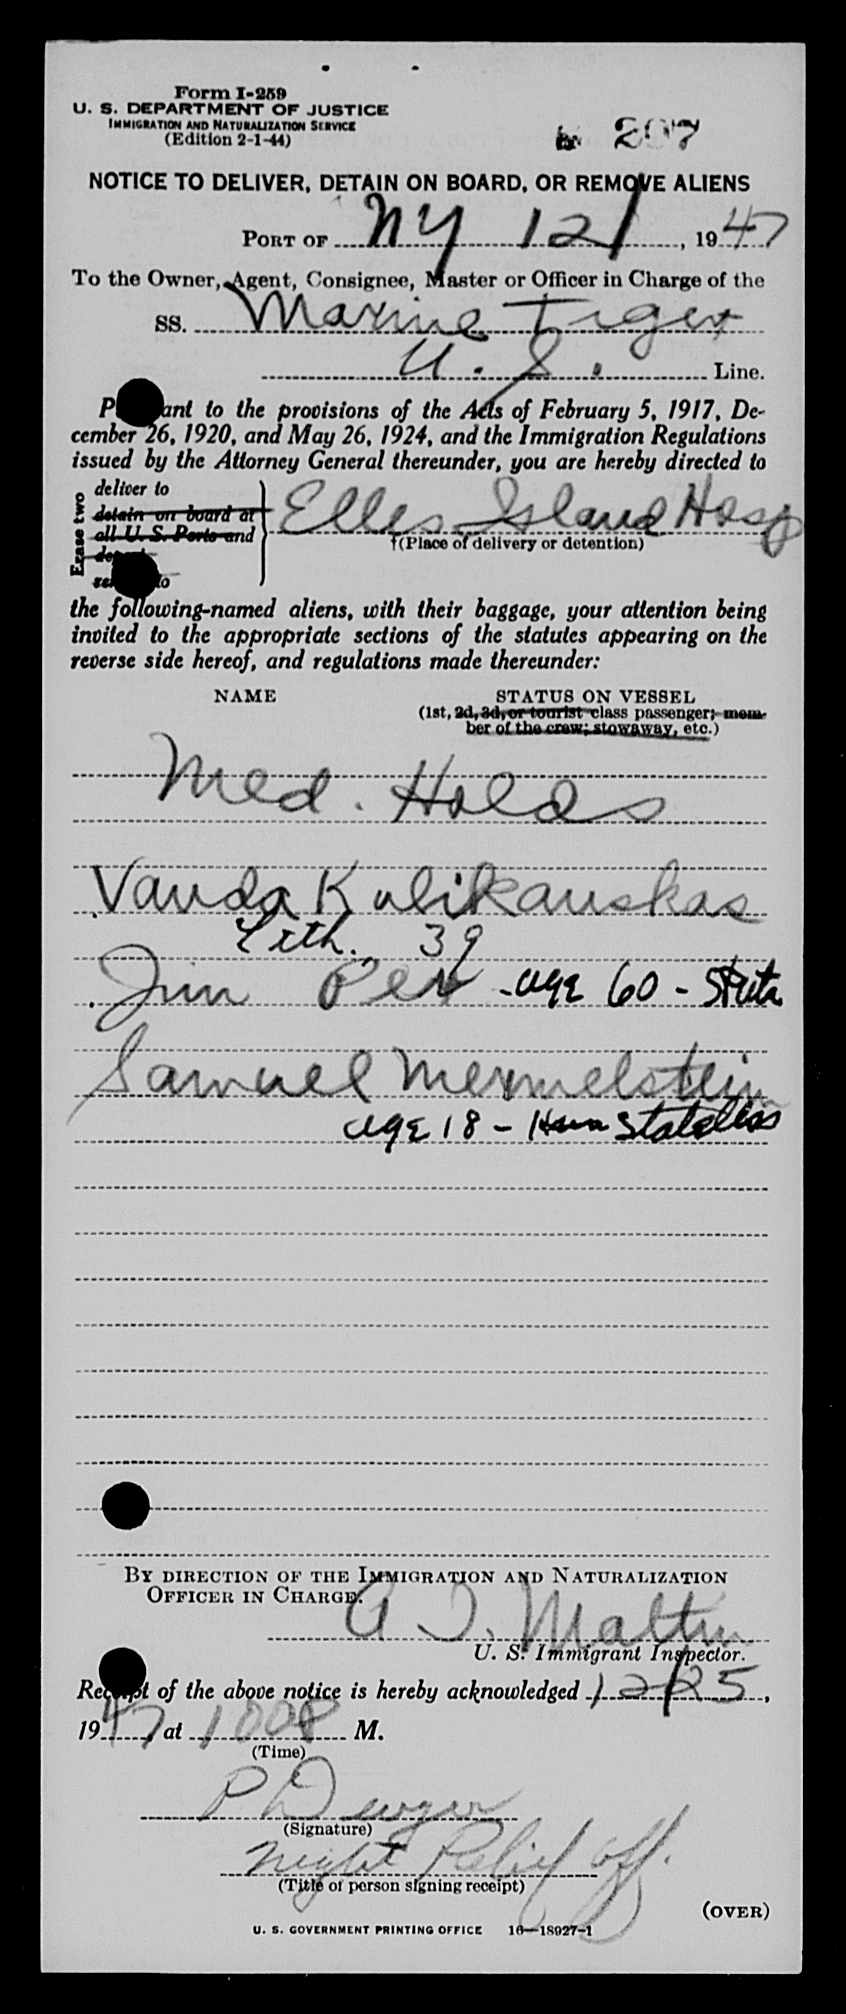 Form I-259
U. S. DEPARTMENT OF JUSTICE
IMMIGRATION AND NATURALIZATION SERVICE
(Edition 2-1-44)
207
NOTICE TO DELIVER, DETAIN ON BOARD, OR REMOVE ALIENS
PORT OF NY 12/, 1947
To the Owner, Agent, Consignee, Master or Officer in Charge of the
SS. Marine Tiger
U. S. Line.
to the provisions of the Acts of February 5, 1917, De-
cember 26, 1920, and May 26, 1924, and the Immigration Regulations
issued by the Attorney General thereunder, you are hereby directed to
Erase two
deliver to
detain on board at
all U. S. Ports and
to
Elles Island Hosp
†(Place of delivery or detention)
the following-named aliens, with their baggage, your attention being
invited to the appropriate sections of the statutes appearing on the
reverse side hereof, and regulations made thereunder:
NAME STATUS ON VESSEL
(1st, 2d, 3d, or tourist class passenger; mem-
ber of the crew; stowaway, etc.)
Med. Holds
Vanda Kulikauskas
Lith. 39
Jim - age 60 -
Samuel Mermelstein
age 18 - Stateless
BY DIRECTION OF THE IMMIGRATION AND NATURALIZATION
OFFICER IN CHARGE.
U. S. Immigrant Inspector.
Receipt of the above notice is hereby acknowledged 12/25,
1947 at 1008 M.
(Time)
P Dwyer
(Signature)
Night Relief Off.
(Title of person signing receipt)
(OVER)
U. S. GOVERNMENT PRINTING OFFICE 16—18927-1